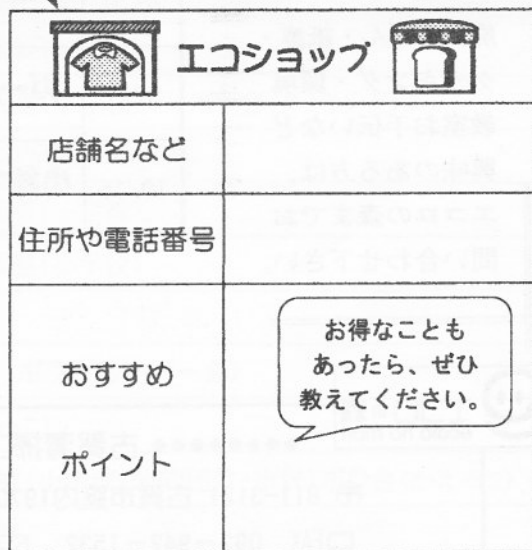 エコショップ
店舗名など
住所や電話番号
おすすめ
ポイント
お得なことも
あったら、ぜひ
教えてください。